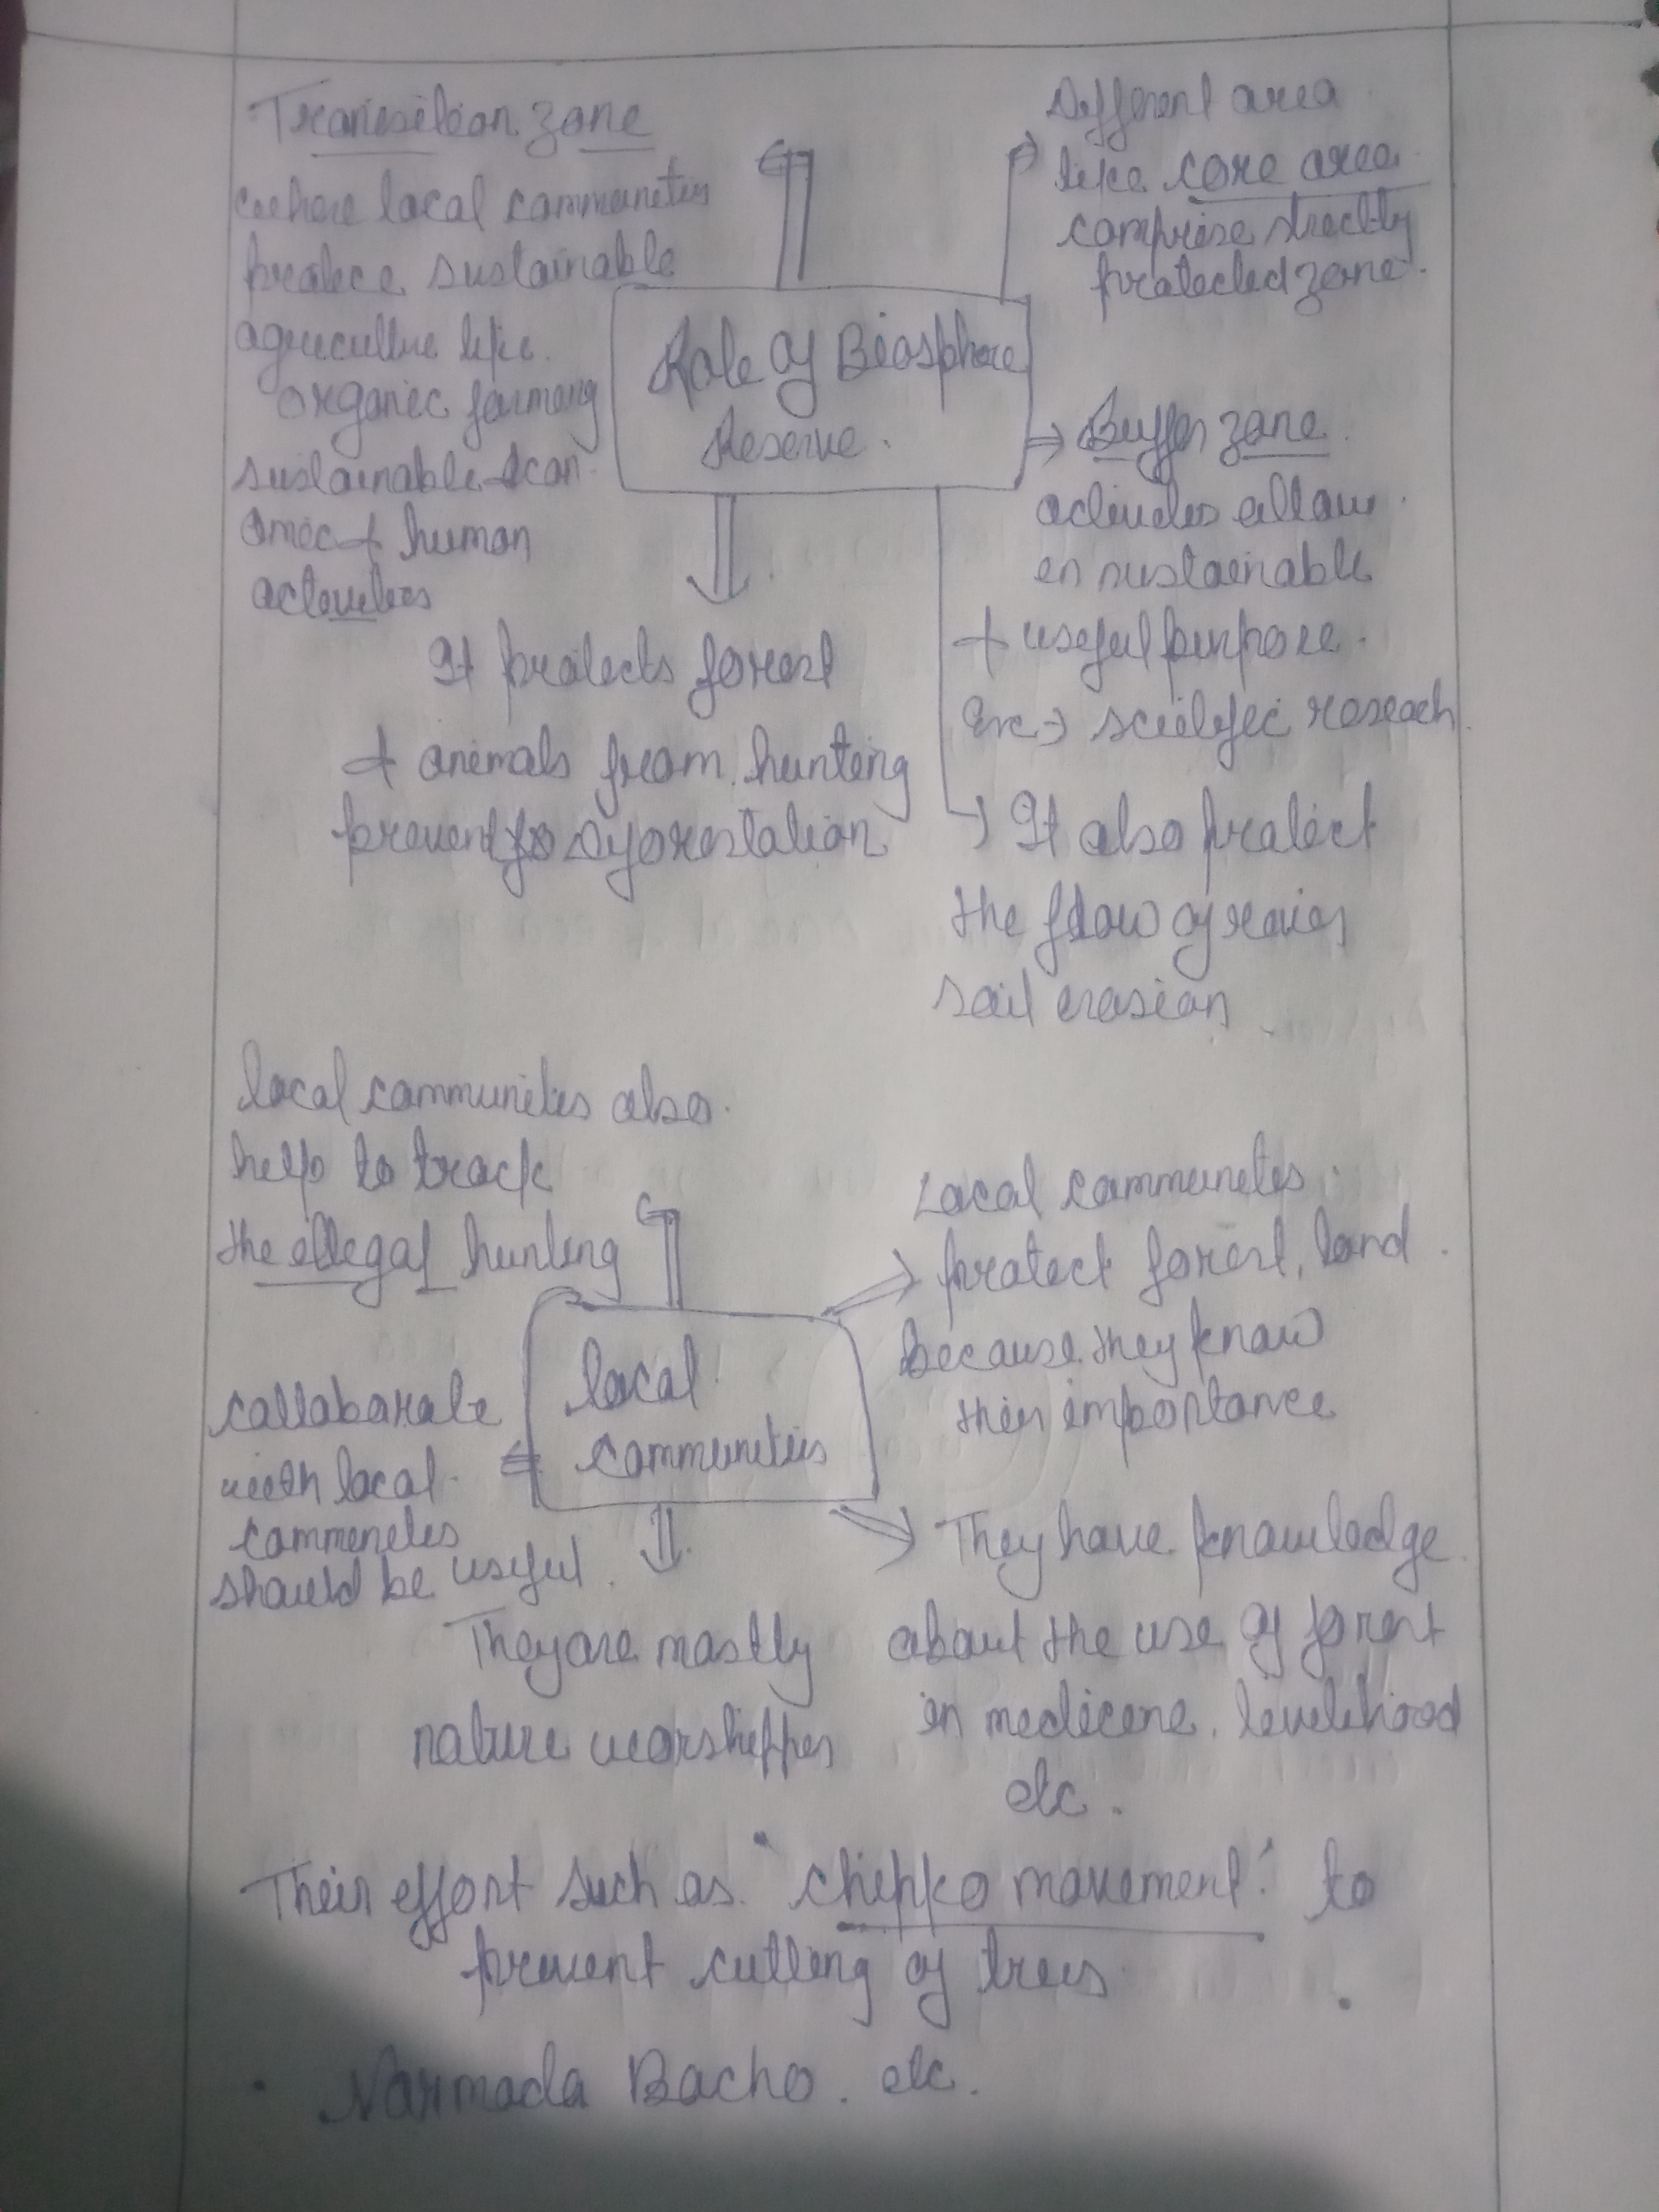 Transition zone
where local communities
practice sustainable
agriculture like
organic farming
sustainable + human
activities
Different area
like core area
comprise strictly
protected zone.
Role of Biosphere
Reserve.
Buffer zone
activities allow
in sustainable
+ useful purpose.
Ex → reseach
It protects forest
+ animals from hunting
prevent Deforestation
It also protect
the flow of
soil erosion
local communities also
help to track
the illegal hunting
Local communites
protect forest, land
because they know
their importance
local
communities
collaborate
with local
communites
should be useful.
They are mostly
nature worshippers
They have knowledge
about the use of forest
in medicine, livelihood
etc.
Their effort such as "chipko movement" to
prevent cutting of trees
. Narmada Bacho. etc.